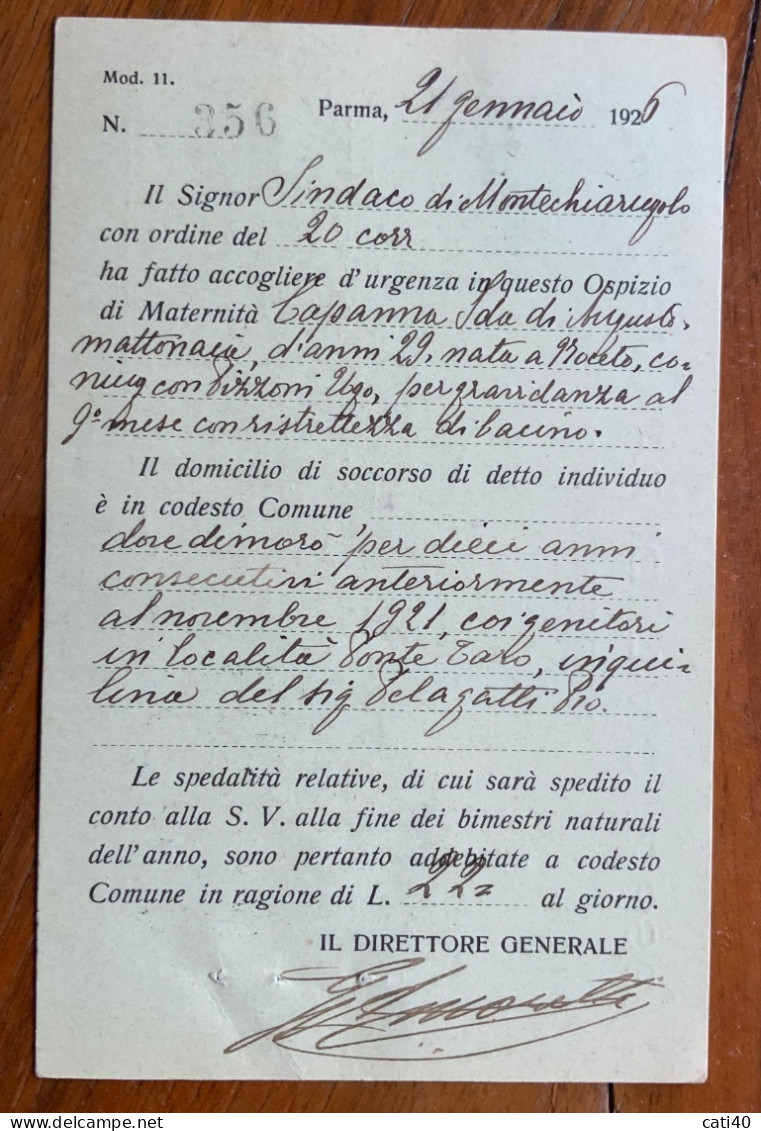 Mod. 11.
N. 356
Parma, 21 gennaio 1926
Il Signor Sindaco di Montechiarugolo
con ordine del 20 corr
ha fatto accogliere d'urgenza in questo Ospizio
di Maternità Capanna Ida di Augusto,
mattonaia, d'anni 29, nata a Noceto, co-
niug con Pizzoni Ugo, per gravidanza al
9° mese con ristrettezza di bacino.
Il domicilio di soccorso di detto individuo
è in codesto Comune
dove dimorò per dieci anni
consecutivi anteriormente
al novembre 1921, coi genitori
in località Ponte Taro, inqui-
lina del sig Pelagatti Pio.
Le spedalità relative, di cui sarà spedito il
conto alla S. V. alla fine dei bimestri naturali
dell'anno, sono pertanto addebitate a codesto
Comune in ragione di L. 22= al giorno.
IL DIRETTORE GENERALE
cati40